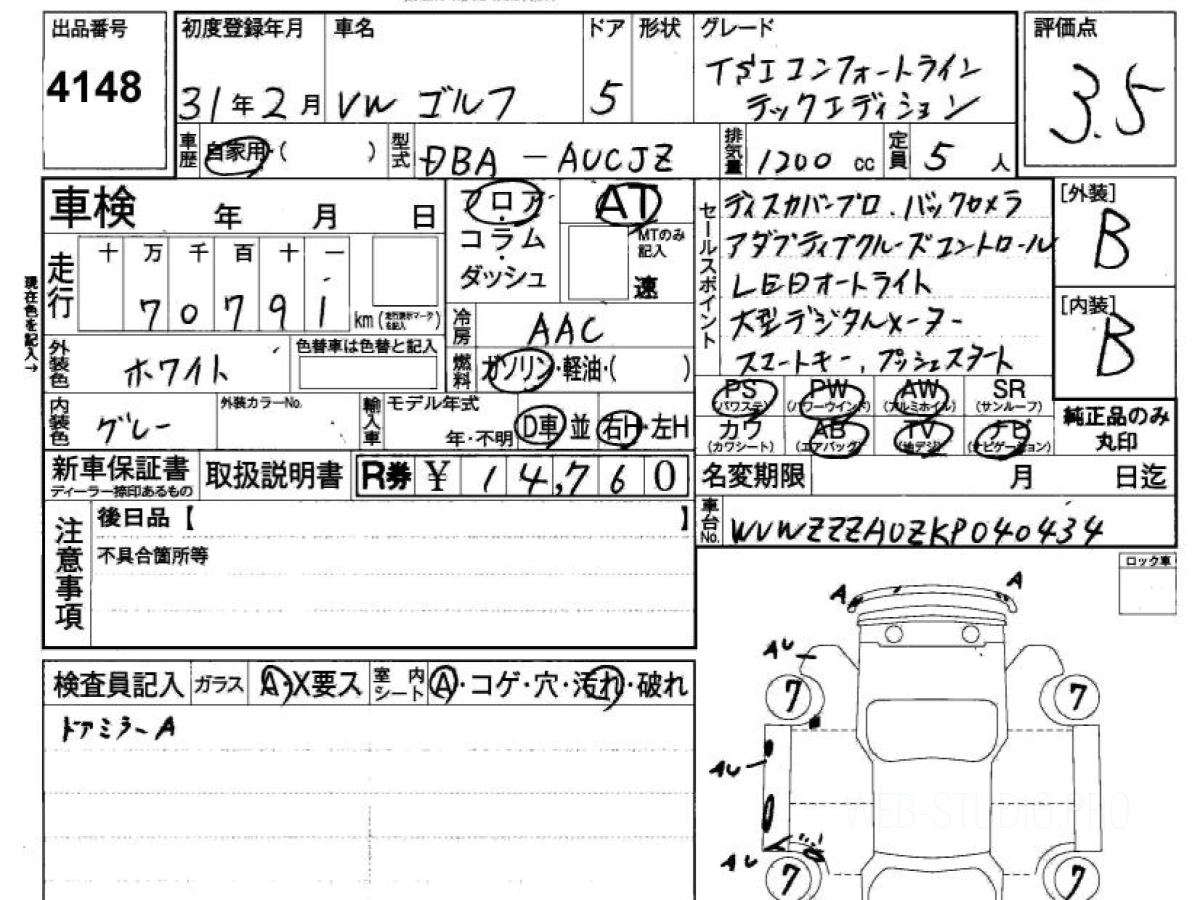 出品番号
4148
初度登録年月
31年2月
車名
VW ゴルフ
ドア
5
形状
グレード
TSIコンフォートライン
テックエディション
評価点
3.5
車歴
自家用・( )
型式
DBA-AUCJZ
排気量
1200 cc
定員
5 人
車検 年 月 日
走行
十 万 千 百 十 一
7 0 7 9 1
km(走行表示マークを記入)
現在色を記入→
フロア・
コラム・
ダッシュ
AT
MTのみ記入
速
冷房
AAC
燃料
ガソリン・軽油・( )
外装色
ホワイト
色替車は色替と記入
内装色
グレー
外装カラーNo.
輸入車
モデル年式
年・不明
D車 並 右H・左H
セールスポイント
ディスカバープロ.バックカメラ
アダプティブクルーズコントロール
LEDオートライト
大型デジタルメーター
スマートキー,プッシュスタート
[外装]
B
[内装]
B
PS(パワステ) PW(パワーウインド) AW(アルミホイル) SR(サンルーフ)
カワ(カワシート) AB(エアバッグ) TV(地デジ) ナビ(ナビゲーション)
純正品のみ
丸印
新車保証書
ディーラー捺印あるもの
取扱説明書
R券 ¥ 14,760
名変期限 月 日迄
車台No.
WVWZZZAUZKP040434
注意事項
後日品【 】
不具合箇所等
ロック車
検査員記入
ガラス
A・X要ス
室内シート
A・コゲ・穴・汚れ・破れ
ドアミラーA
A A
AU
7 7
AU
AU
7 7
WEB-STUDIO.PRO